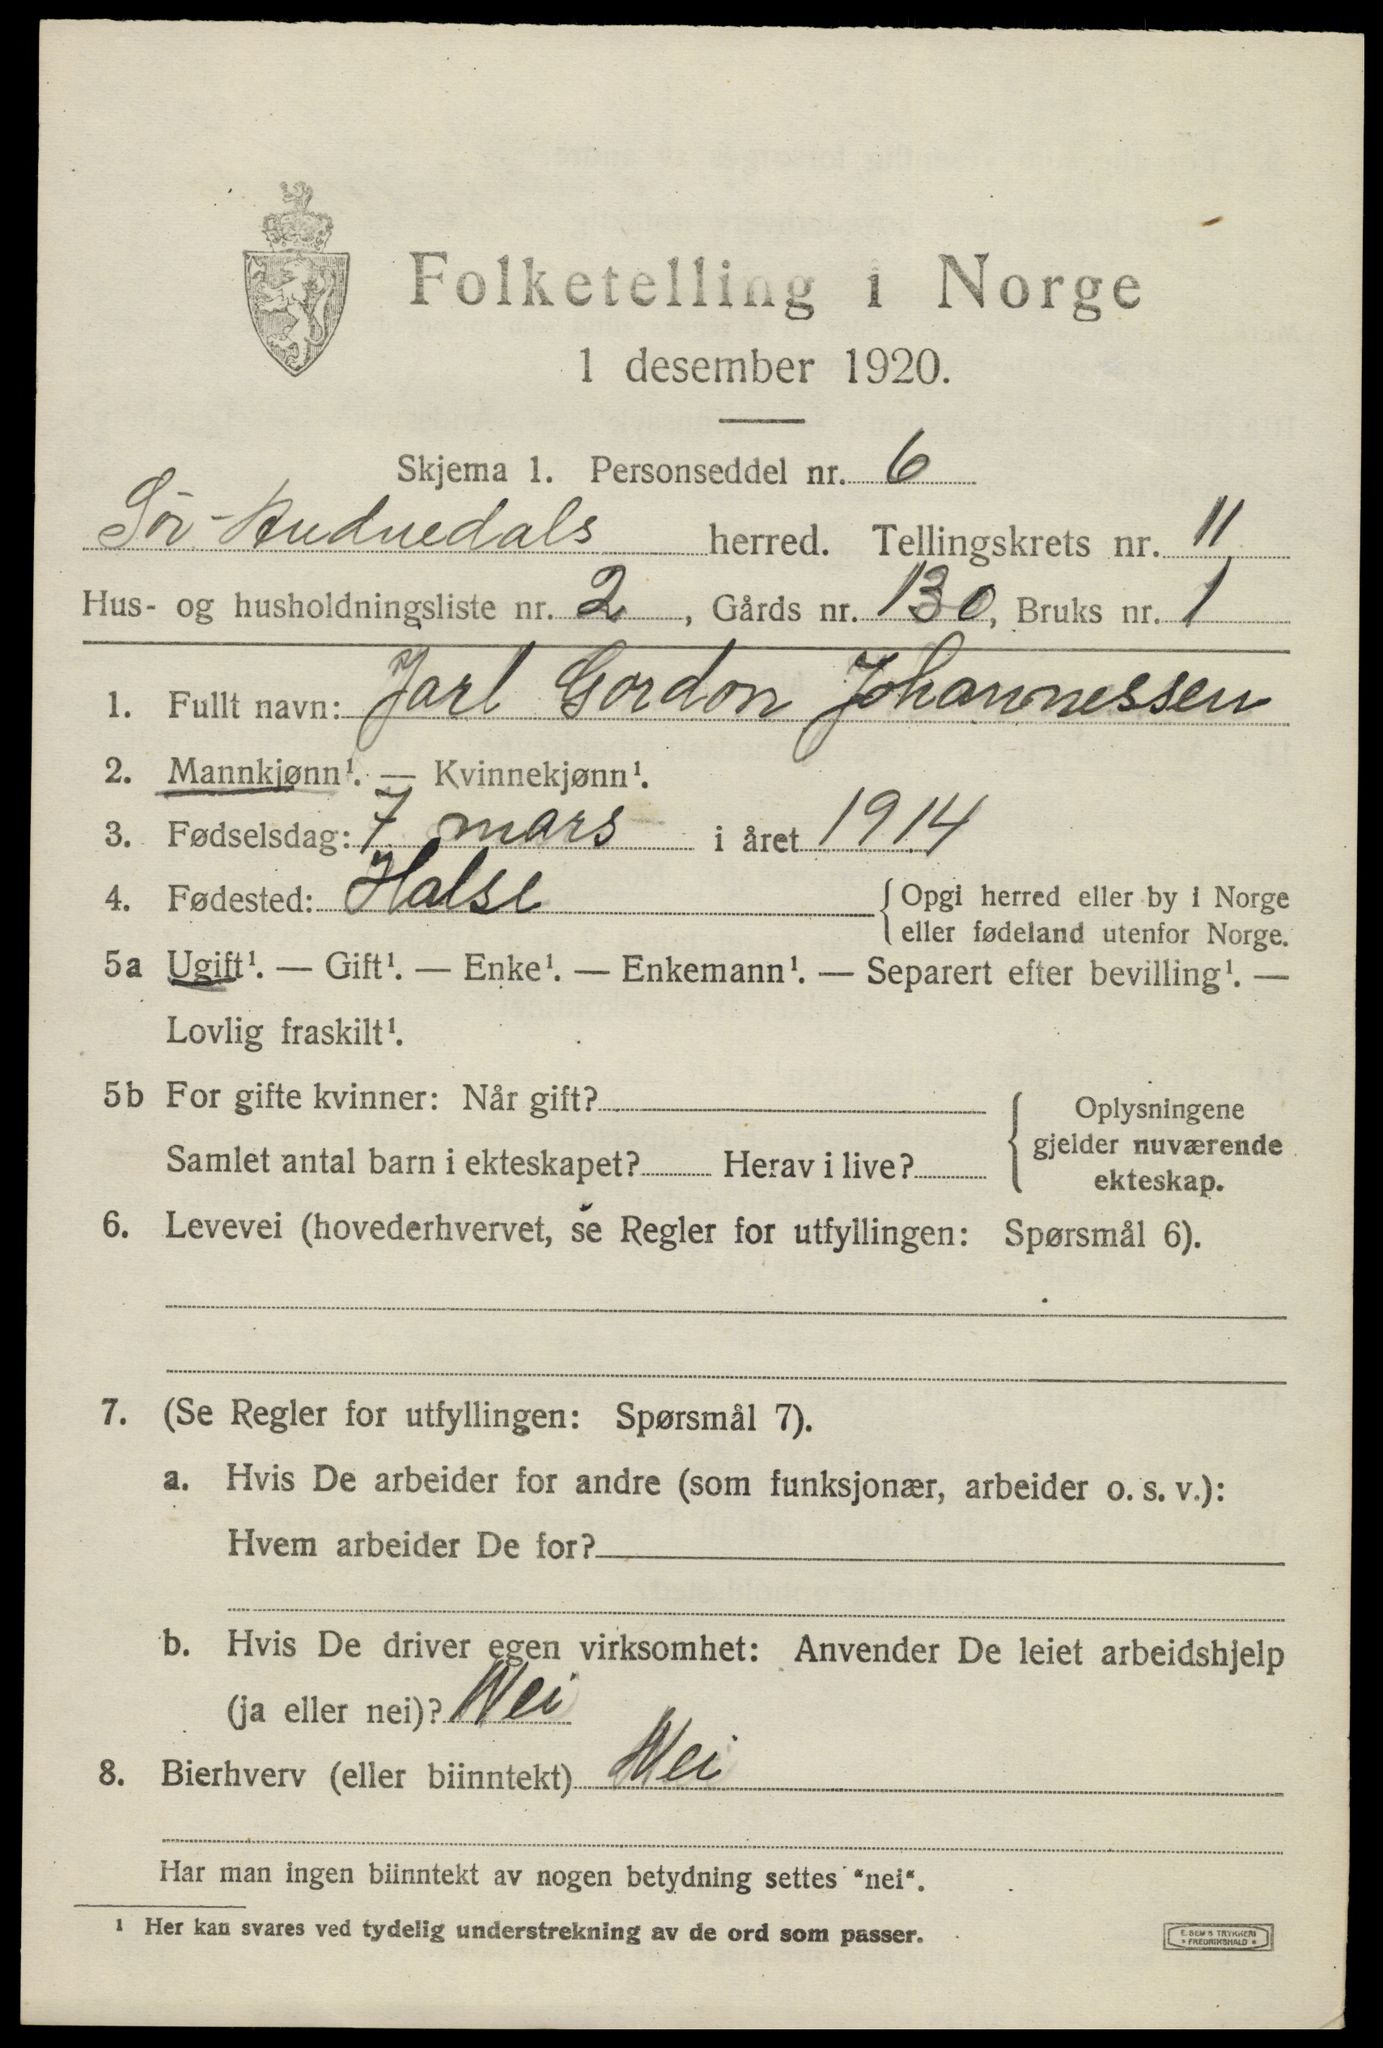 Folketelling i Norge
1 desember 1920.
Skjema 1. Personseddel nr. 6
Sör-Audnedals herred. Tellingskrets nr. 11
Hus- og husholdningsliste nr. 2, Gårds nr. 130, Bruks nr. 1
1. Fullt navn: Jarl Gordon Johannessen
2. Mannkjønn¹. — Kvinnekjønn¹.
3. Fødselsdag: 7 mars i året 1914
4. Fødested: Halse
{Opgi herred eller by i Norge
eller fødeland utenfor Norge.
5a Ugift¹. — Gift¹. — Enke¹. — Enkemann¹. — Separert efter bevilling¹. —
Lovlig fraskilt¹.
5b For gifte kvinner: Når gift?
Samlet antal barn i ekteskapet? Herav i live?
{Oplysningene
gjelder nuværende
ekteskap.
6. Levevei (hovederhvervet, se Regler for utfyllingen: Spørsmål 6).
7. (Se Regler for utfyllingen: Spørsmål 7).
a. Hvis De arbeider for andre (som funksjonær, arbeider o. s. v.):
Hvem arbeider De for?
b. Hvis De driver egen virksomhet: Anvender De leiet arbeidshjelp
(ja eller nei)? Nei
8. Bierhverv (eller biinntekt) Nei
Har man ingen biinntekt av nogen betydning settes "nei".
¹ Her kan svares ved tydelig understrekning av de ord som passer.
E. SEM'S TRYKKERI
* FREDRIKSHALD *